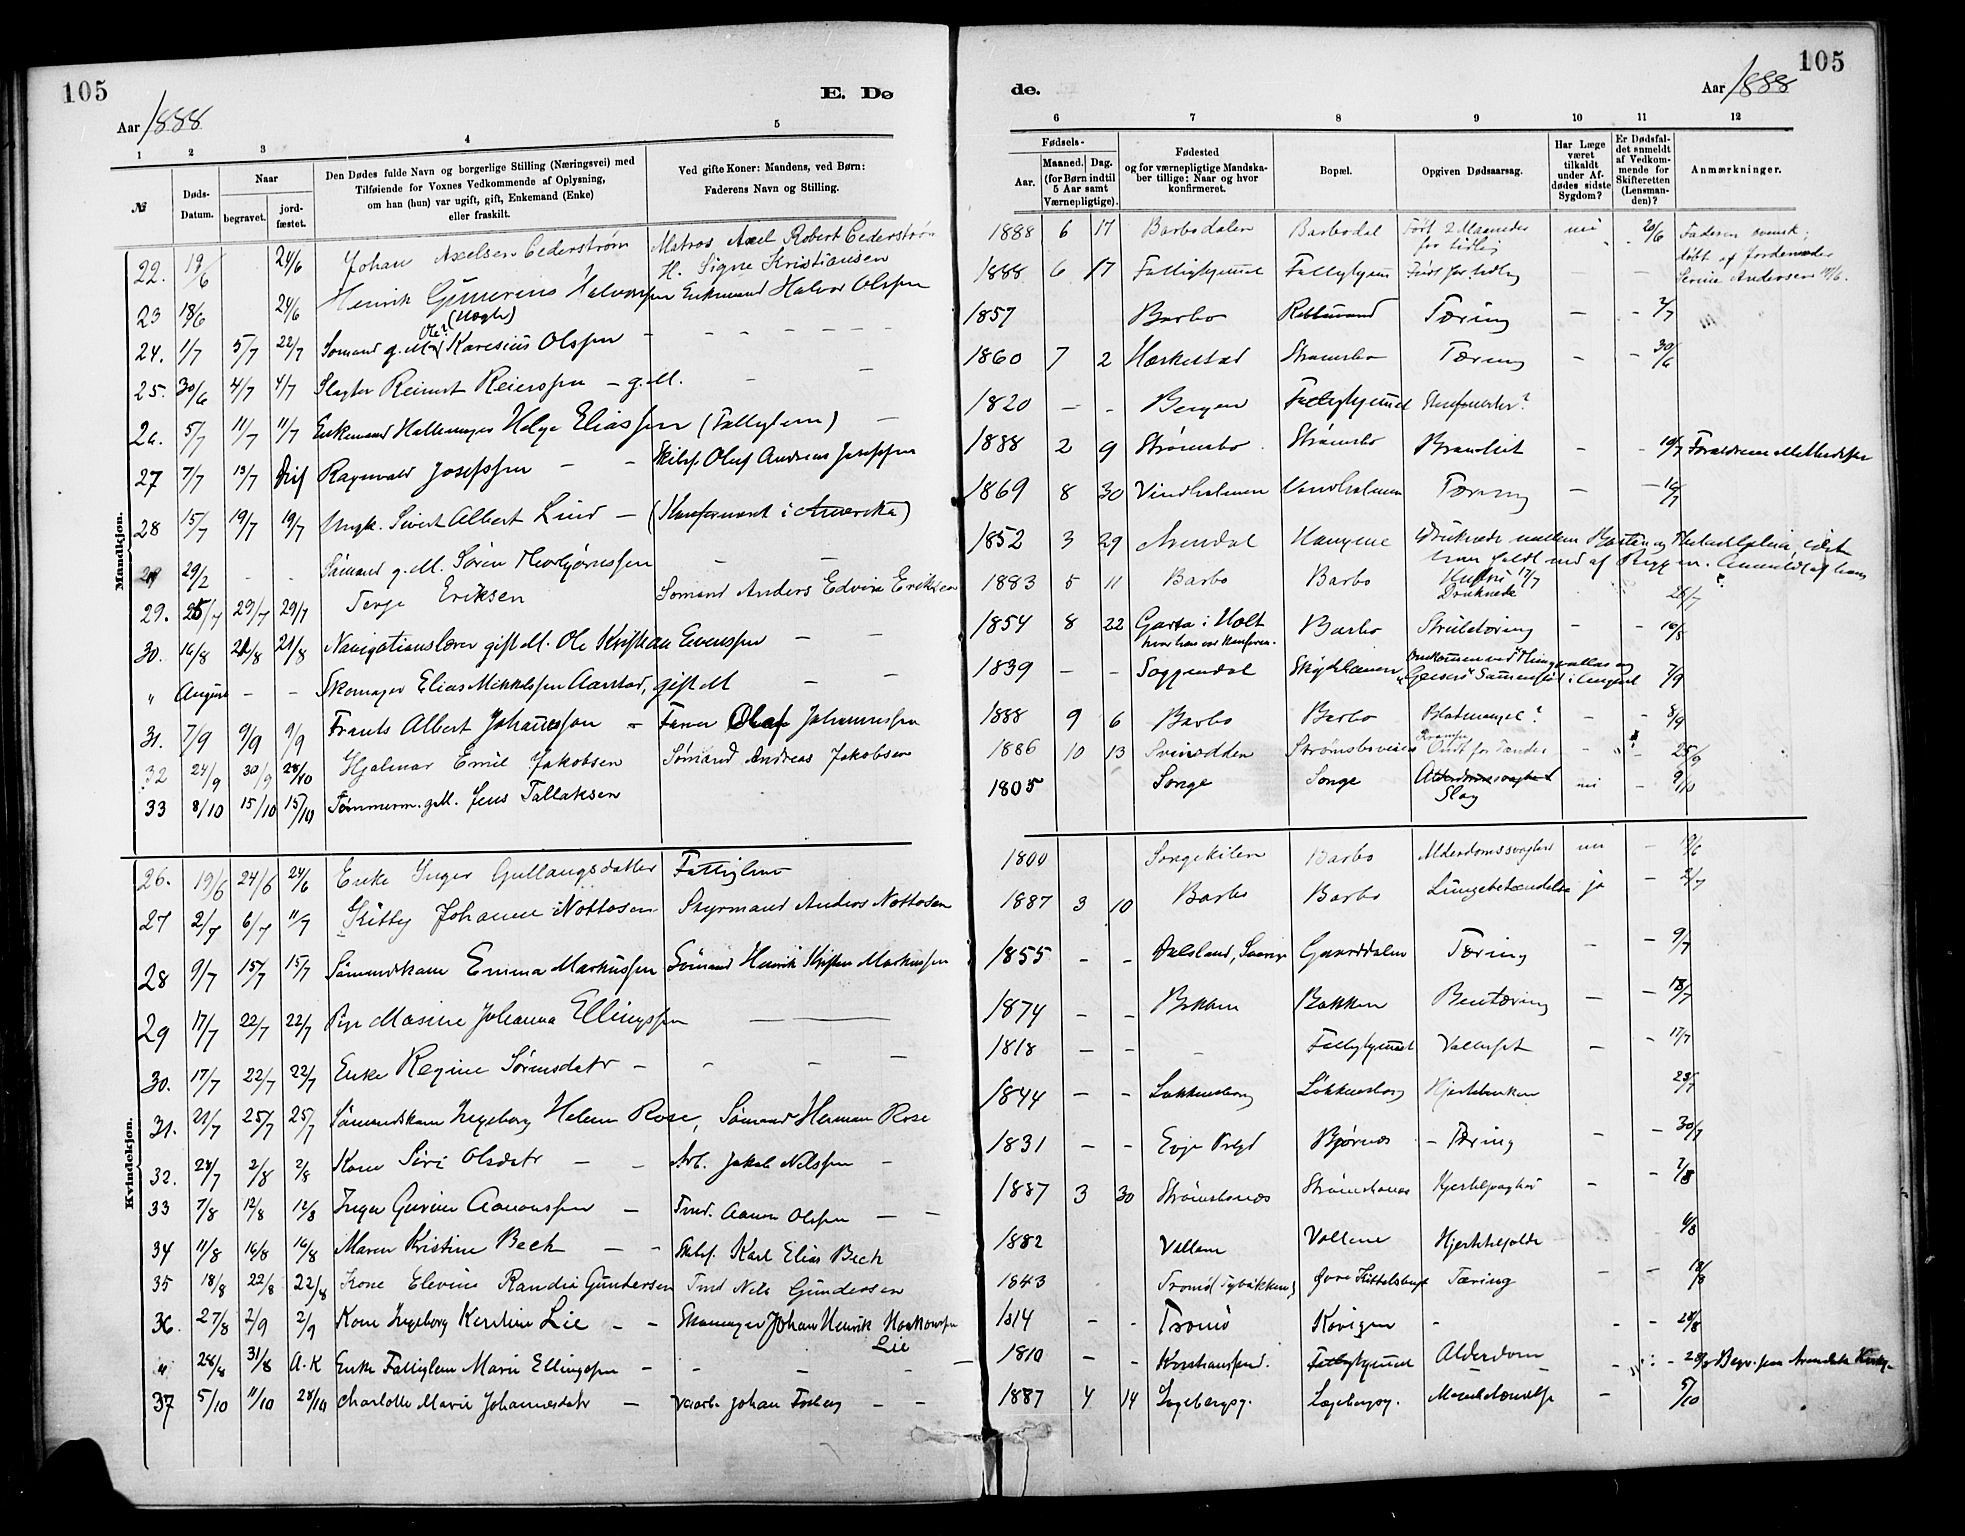 105
E. Dø
de.
105
Aar 1888
Aar 1888
1 2 3 4 5
6 7 8 9 10 11 12
№
Døds-Datum.
Naar
begravet.
jord-fæstet.
Den Dødes fulde Navn og borgerlige Stilling (Næringsvei) med
Tilføiende for Voxnes Vedkommende af Oplysning,
om han (hun) var ugift, gift, Enkemand (Enke)
eller fraskilt.
Ved gifte Koner: Mandens, ved Børn:
Faderens Navn og Stilling.
Fødsels-
Aar.
Maaned. Dag.
(for Børn indtil
5 Aar samt
Værnepligtige).
Fødested
og for værnepligtige Mandska-
ber tillige: Naar og hvor
konfirmeret.
Bopæl.
Opgiven Dødsaarsag.
Har Læge
været
tilkaldt
under Af-
dødes sidste
Sygdom?
Er Dødsfal-
det anmeldt
af Vedkom-
mende for
Skifteretten
(Lensman-
den)?
Anmærkninger.
Mandkjøn.
22. 19/6 24/6 Johan Axelsen Cederstrøm Matros Axel Robert Cederstrøm H. Signe Kristiansen 1888 6 17 Barbodalen Barbodal Født 2 Maaneder for tidlig nei 20/6 Faderen svensk; døbt af Jordemoder
23 18/6 24/6 Henrik Halvorsen Enkemand Halvor Olssen 1888 6 17 Født for tidlig
24. 1/7 5/7 22/7 Sømand g. M. Karesius Olssen – 1857 Barbo Tæring – – 2/7
25. 30/6 4/7 4/7 Slagter Reinert Reierssen – g. M. – 1860 7 2 Strømsbo Tæring – – 30/6
26. 5/7 11/7 11/7 Enkemand Helge Eliassen (Fattiglem) – 1820 – – Bergen
27 7/7 13/7 Ragnvald Josefssen – – Skibsf. Oluf Andreas Josefssen 1888 2 9 Strømsbo Strømsbo – – 10/7
28 15/7 19/7 19/7 Ungk. Sivert Albert Lind – (Konfirmeret i Amerika) 1869 8 30 Vindholmen Vindholmen Tæring – – 16/7
29/2 – – Sømand g. M. Søren – 1852 3 29 Arendal Druknede mellem Boston og Philadelphia, idet han faldt ned af Anmeldt af hans Hustru 17/7
29. 25/7 29/7 29/7 Terje Eriksen Sømand Anders Edvin Eriksen 1883 5 11 Barbo Barbo Druknede 26/7
30. 16/8 21/8 21/8 Navigationslærer gift M. Ole Kristian Evenssen – – 1854 8 22 Garta i Holt hvor han var Konfirm. Barbo Strubetæring – – 16/8
" August – – Skomager Elias Mikkelssen Aarstad, gift M – – 1839 – – Soggendal Omkommen ved "Thingvalla" og "Geisers" Sammenstød i August 7/9
31. 7/9 9/9 9/9 Frants Albert Johanssen – Olaf Johannessen 1888 9 6 Barbo Barbo – – 8/9
32 24/9 30/9 28/10 Hjalmar Emil Jakobsen Sømand Andreas Jakobsen 1886 10 13 Svinodden Strømsboveien Ondt for Tænder – 25/9
33 8/10 15/10 15/10 Tømmerm. g. M. Jens Tallaksen 1805 Songe Songe Alderdomssvaghed Slag nei – 9/10
Kvindekjøn.
26. 19/6 24/6 24/6 Enke Inger Gullangsdatter Fattiglem 1800 Songekilen Barbo Alderdomssvaghed nei – 19/6
27 2/7 6/7 11/7 Kitty Johanne Nottosen Styrmand Anders Nottosen 1887 3 10 Barbo Barbo Lungebetændelse ja – 2/7
28 9/7 15/7 15/7 Sømandskone Emma Markussen Sømand Henrik Kristen Markussen 1855 – – Dalsland, Sverige Gaarddalen Tæring – – 9/7
29 17/7 22/7 22/7 Pige Masine Johanna Ellingssen — 1874 – – Bakken Bakken Bentæring – – 18/7
30. 17/7 22/7 22/7 Enke Regine Sørensdatr – – – – 1818 – – – Vattersot – – 17/7
31. 21/7 25/7 25/7 Sømandskone Ingeborg Helene Rose, Sømand Herman Rose 1844 – – Løkkensborg Løkkensborg 23/7
32. 28/7 2/8 2/8 Kone Siri Olsdatr – – Arb. Jakob Nilssen – 1831 – – Evje Bjørnes – Tæring – – 30/7
33 7/8 12/8 12/8 Inger Gurine Aanonssen – Tmd. Aanon Olssen – – 1887 3 30 Strømsbonæs Strømsbonæs – – 7/8
34 11/8 16/8 16/8 Maren Kristine Bech – – Skibsf. Karl Elias Bech 1882 Vallene 6/8
35 18/8 22/8 22/8 Kone Elevine Randi Gundersen Tmd Nils Gundersen 1843 Tromø (Tybakken) Øvre Kittelsbugt Tæring – – 18/8
36. 27/8 2/9 2/9 Kone Ingeborg Kerstine Lie – – Skomager Johan Henrik Haakonssen Lie 1814 – – Tromø Kovigen – – – 28/8
" 28/8 31/8 A.K Enke Fattiglem Marie Ellingssen – – – – 1810 – – Kristianssand. Alderdom – – Begr. fra Arendals Kirke.
37 5/10 11/10 28/10 Charlotte Marie Johannesdatr – Johan – – 1887 4 14 – 5/10